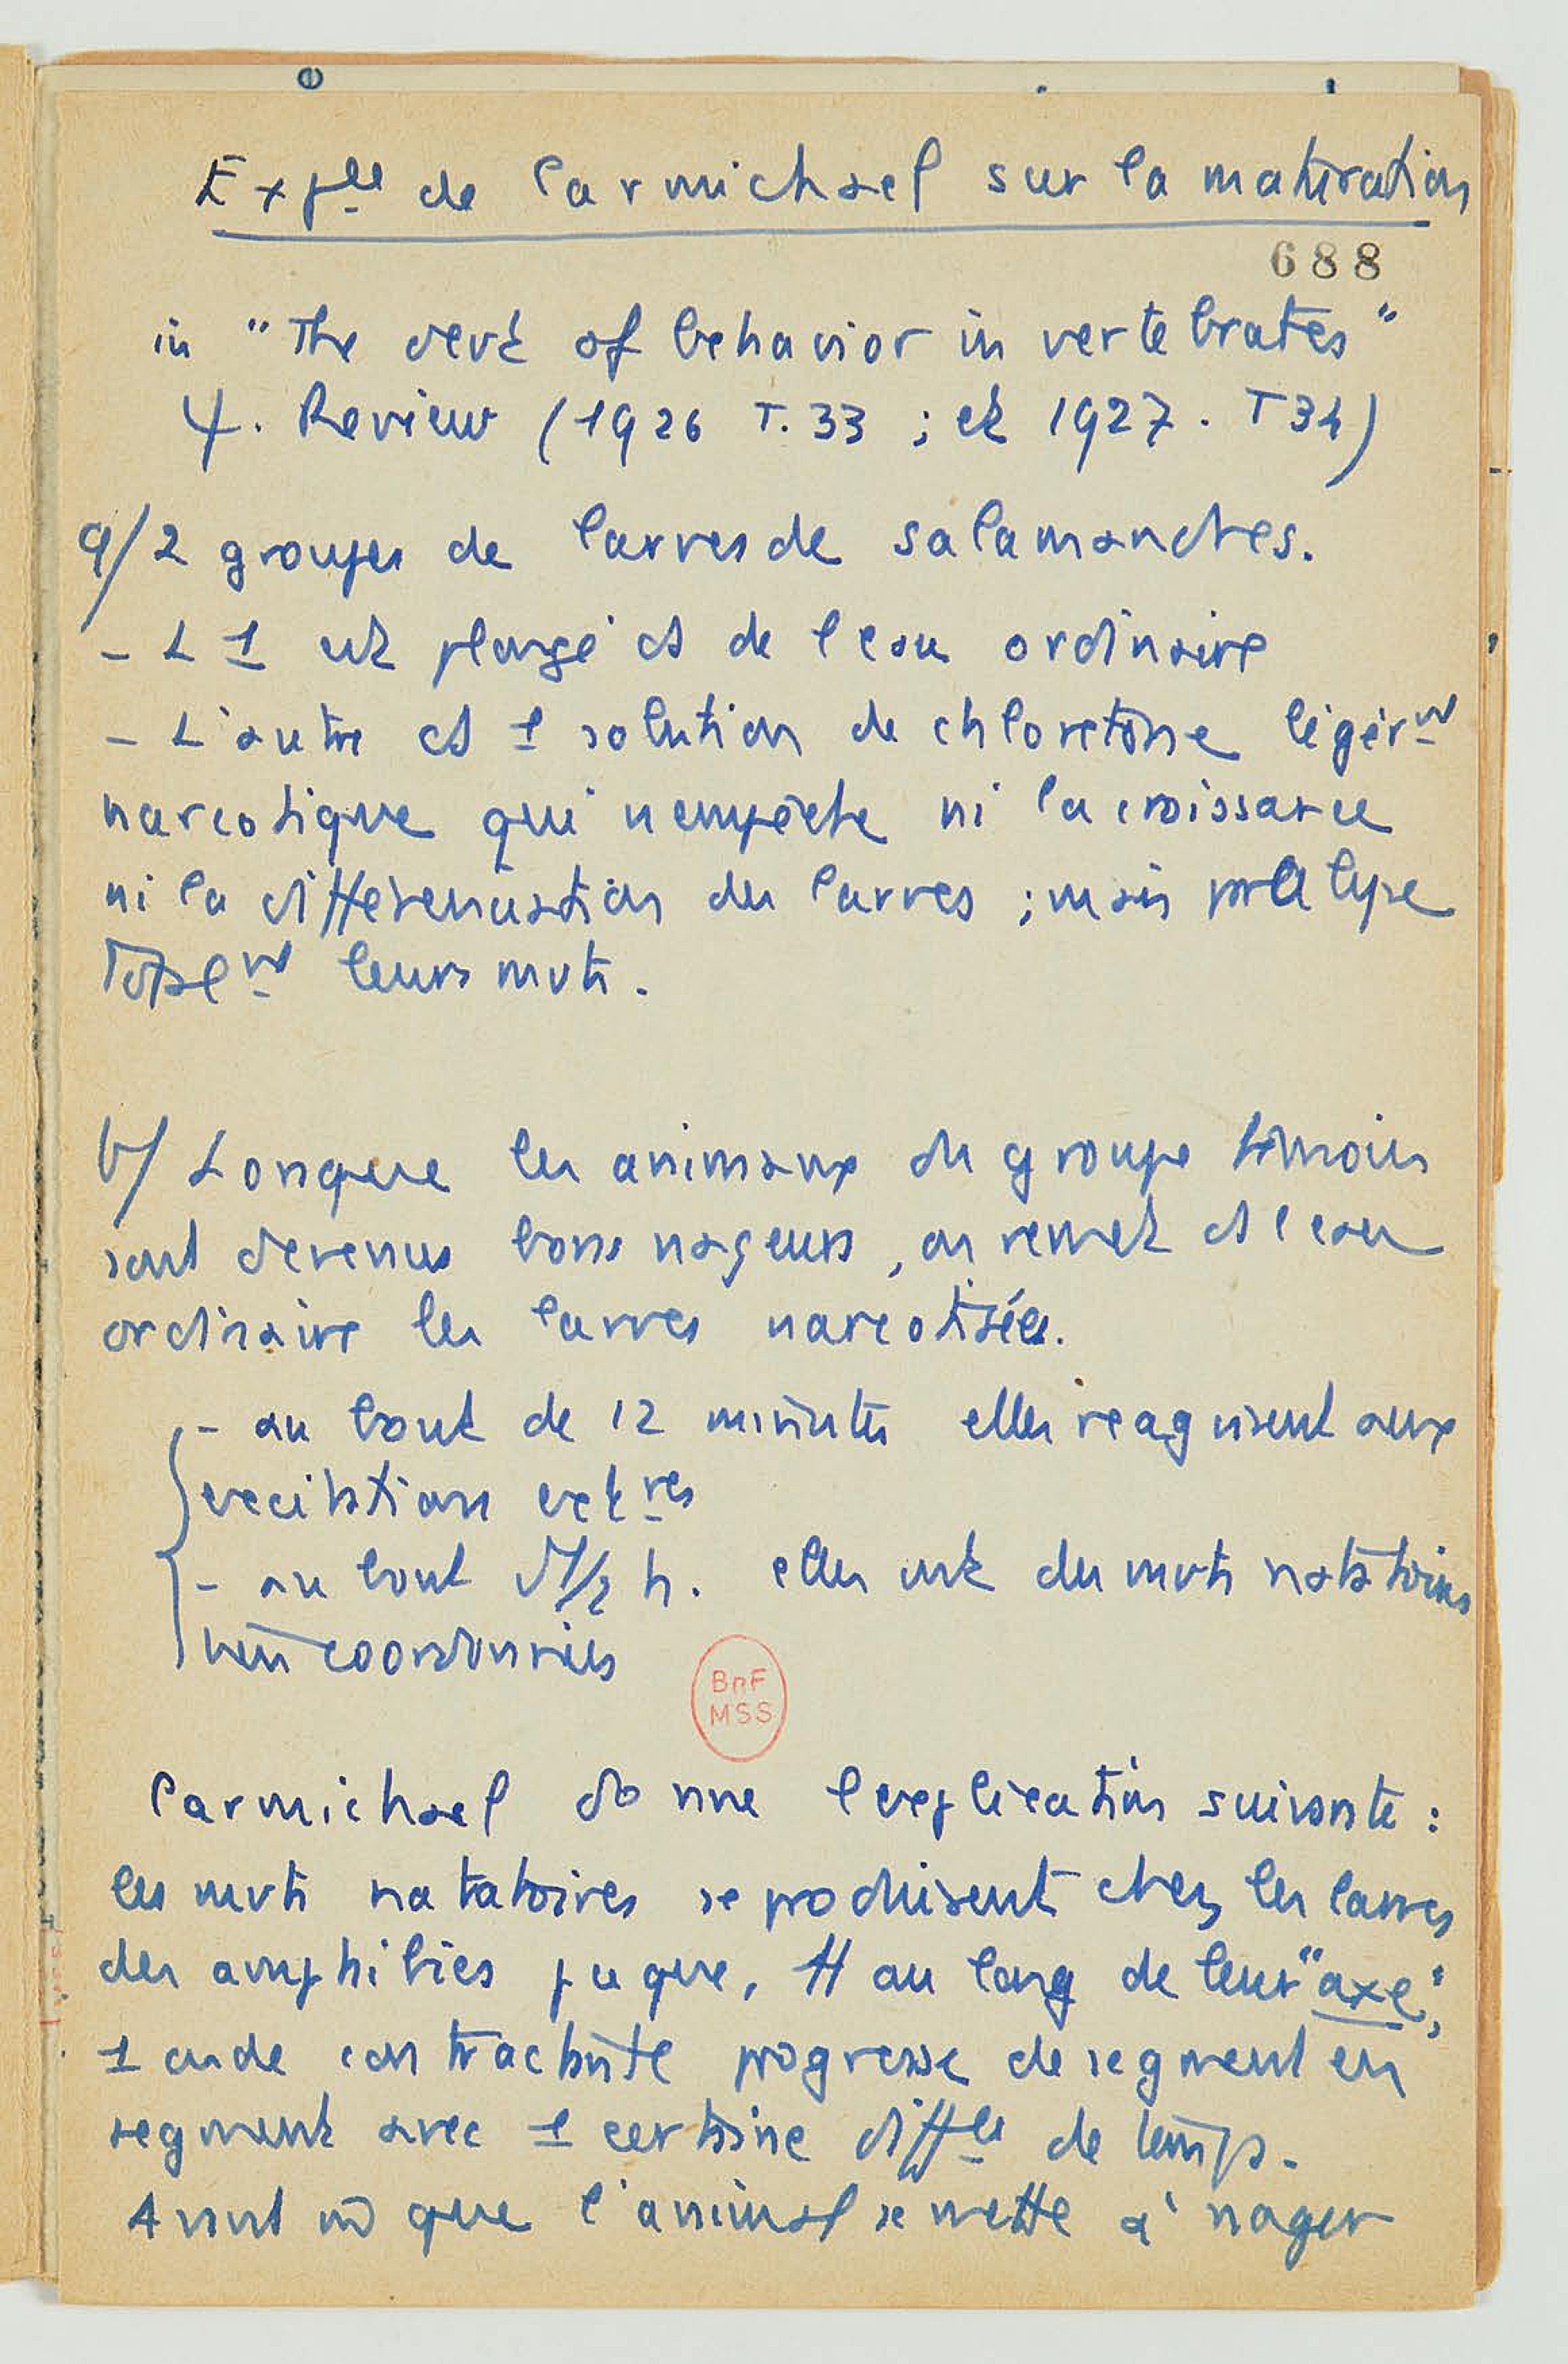 Exp^ces de Carmichael sur la maturation
688
in "The devt of behavior in vertebrates"
Ψ. Review (1926 T. 33 ; et 1927. T 34)
a/ 2 groupes de larves de salamandres.
- L 1 est plongé ds de l'eau ordinaire
- L'autre ds 1 solution de chloretone légèr^nt
narcotique qui n'empêche ni la croissance
ni la différenciation des larves ; mais
total^nt leurs mvts.
b/ Lorsque les animaux du groupe témoin
sont devenus bons nageurs, on remet ds l'eau
ordinaire les larves narcotisées.
- au bout de 12 minutes elles réagissent aux
excitations ext^res
- au bout d'1/2 h. elles ont des mvts natatoires
bien coordonnés
BnF
MSS
Carmichael donne l'explication suivante :
les mvts natatoires se produisent chez les larves
des amphibies pcq que, tt au long de leur "axe",
1 onde contractile progresse de segment en
segment avec 1 certaine diff^ce de temps.
Avant m̂ que l'animal se mette à nager